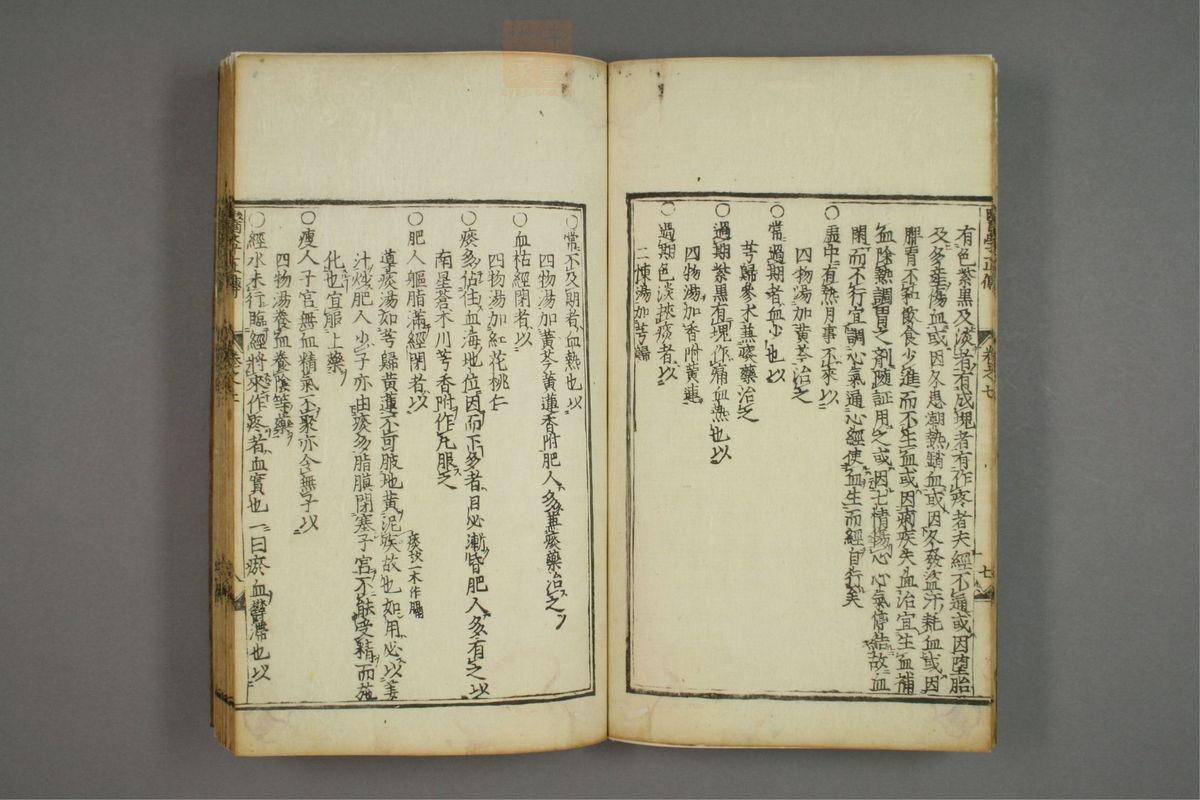 醫學正傳 卷之七 七
有色紫黑及淡者有成塊者有作疼者夫經不通或因墮胎
及多産傷血或因久患潮熱銷血或因久發盜汗耗血或因
脾胃不和飲食少進而不生血或因痢疾失血治宜生血補
血除熱調胃之劑隨証用之或因七情傷心心氣停結故血
閉而不行宜調心氣通心經使血生而經自行矣
○虛中有熱月事不來以
四物湯加黃芩治之
○常過期者血少也以
芎歸參朮兼痰藥治之
○過期紫黑有塊作痛血熱也以
四物湯加香附黃連
○過期色淡挾痰者以
二陳湯加芎歸
○常不及期者血熱也以
四物湯加黃芩黃蓮香附肥人多兼痰藥治之
○血枯經閉者以
四物湯加紅花桃仁
○痰多佔住血海地位因而下多者目必漸昏肥人多有之以
南星蒼朮川芎香附作丸服之
○肥人軀脂滿經閉者以
導痰湯如芎歸黃蓮不可服地黃泥痰故也如用必以姜
痰按一木作膈
汁炒肥人少子亦由痰多脂膜閉塞子宮不能受精而施
化也宜服上藥
○瘦人子宮無血精氣不聚亦令無子以
四物湯養血養陰等藥
○經水未行臨經將來作疼者血實也一曰瘀血鬱滯也以